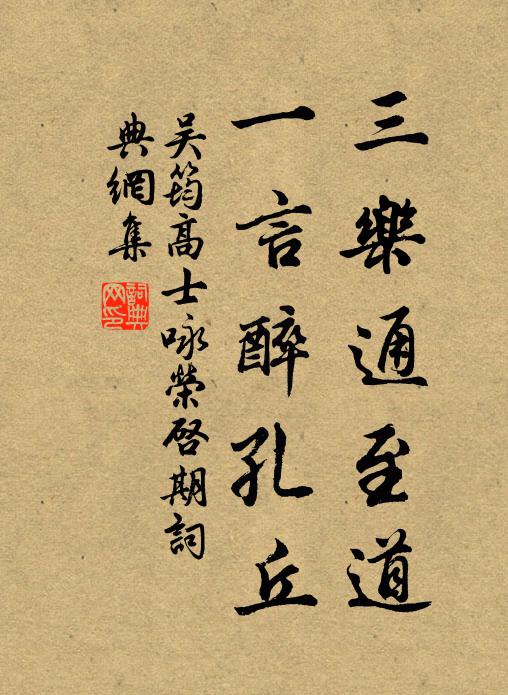 三樂通至道
一言醉孔丘
吳筠高士咏榮啓期詞
典網集
詞典網印